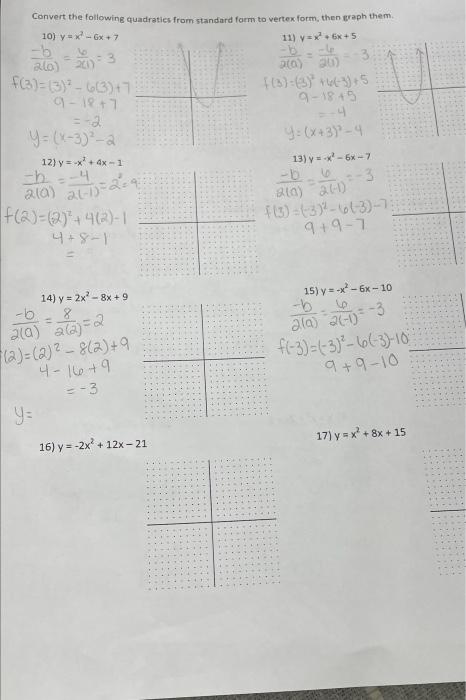 Convert the following quadratics from standard form to vertex form, then graph them.
10) y = x² – 6x + 7
-b/2(a) = 6/2(1) = 3
f(3)=(3)² - 6(3)+7
9 - 18 + 7
= -2
y = (x-3)² - 2
11) y = x² + 6x + 5
-b/2(a) = -6/2(1) = -3
f(3)=(-3)² + 6(-3)+5
9 - 18 + 5
= -4
y = (x+3)² - 4
12) y = -x² + 4x – 1
-b/2(a) = -4/2(-1) = 2
f(2)=(2)² + 4(2)-1
4 + 8 - 1
=
13) y = -x² – 6x – 7
-b/2(a) = 6/2(-1) = -3
f(3)=(-3)² - 6(-3)-7
9 + 9 - 7
14) y = 2x² – 8x + 9
-b/2(a) = 8/2(2) = 2
(2)=(2)² - 8(2)+9
4 - 16 + 9
= -3
y =
15) y = -x² – 6x – 10
-b/2(a) = 6/2(-1) = -3
f(-3)=(-3)² - 6(-3)-10
9 + 9 - 10
16) y = -2x² + 12x – 21
17) y = x² + 8x + 15